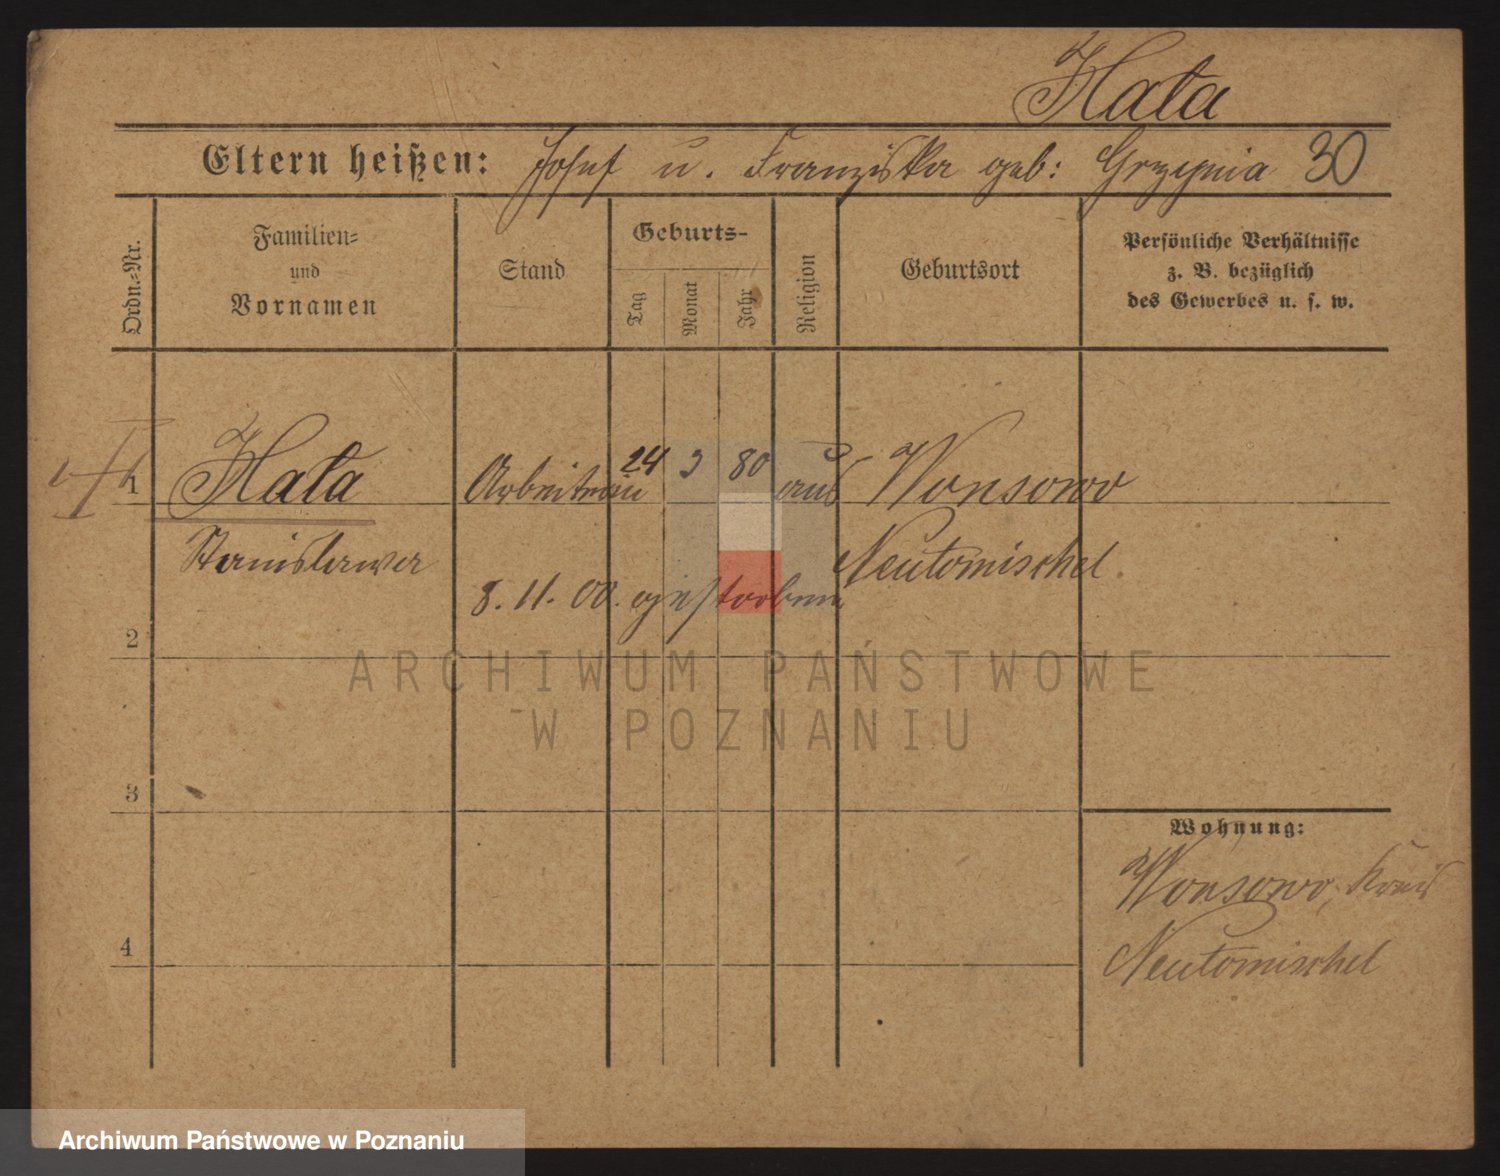 Hala
Eltern heißen: Josef u. Franziska geb: 30
Ordn.-Nr.
Familien-
und
Vornamen
Stand
Geburts-
Tag
Monat
Jahr
Religion
Geburtsort
Persönliche Verhältnisse
z. B. bezüglich
des Gewerbes u. s. w.
1 Hala Arbeiterin 24 3 80 aus Wonsowo
Stanislawa Neutomischel.
8. 11. 00. gestorben
2
ARCHIWUM PAŃSTWOWE
W POZNANIU
3
Wohnung:
Wonsowo, Kreis
4 Neutomischel
Archiwum Państwowe w Poznaniu